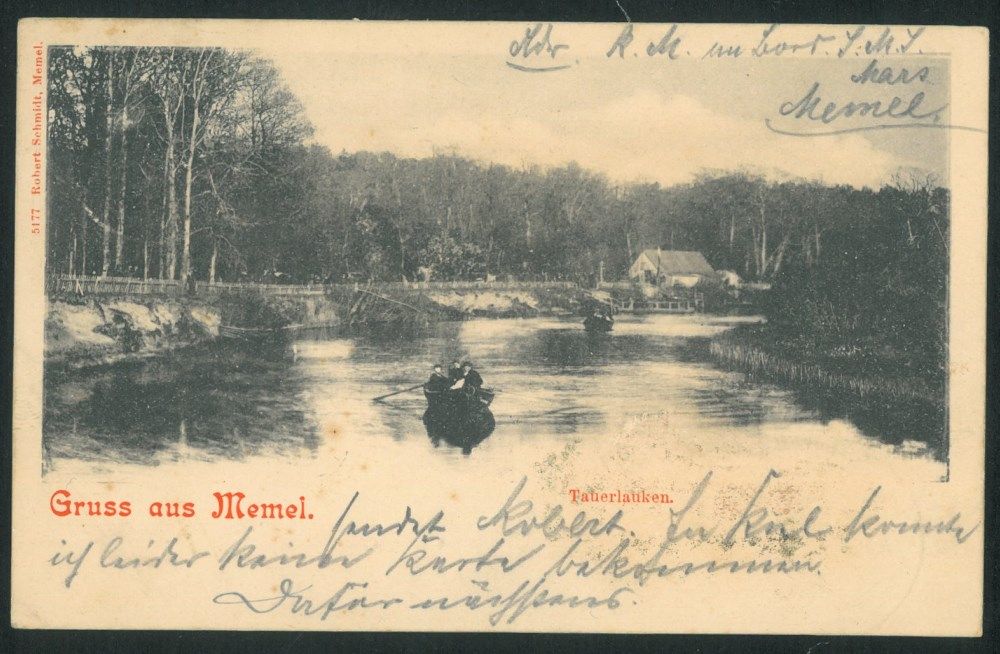 Adr. R. M. an Bord S.M.S.
Mars
Memel.
5177 Robert Schmidt, Memel.
Tauerlauken.
Gruss aus Memel.
sendet Robert. In Kiel konnte
ich leider keine Karte bekommen.
Dafür nächstens.